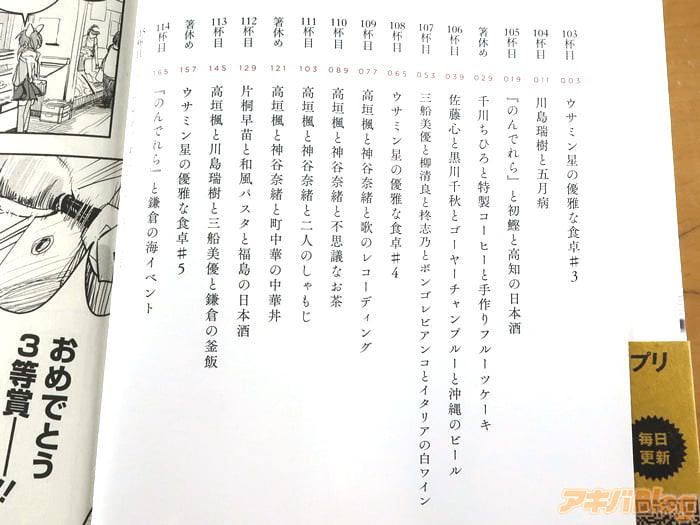 103杯目 003 ウサミン星の優雅な食卓#3
104杯目 011 川島瑞樹と五月病
105杯目 019 『のんでれら』と初鰹と高知の日本酒
箸休め 029 千川ちひろと特製コーヒーと手作りフルーツケーキ
106杯目 039 佐藤心と黒川千秋とゴーヤーチャンプルーと沖縄のビール
107杯目 053 三船美優と柳清良と柊志乃とボンゴレビアンコとイタリアの白ワイン
108杯目 065 ウサミン星の優雅な食卓#4
109杯目 077 高垣楓と神谷奈緒と歌のレコーディング
110杯目 089 高垣楓と神谷奈緒と不思議なお茶
111杯目 103 高垣楓と神谷奈緒と二人のしゃもじ
箸休め 121 高垣楓と神谷奈緒と町中華の中華丼
112杯目 129 片桐早苗と和風パスタと福島の日本酒
113杯目 145 高垣楓と川島瑞樹と三船美優と鎌倉の釜飯
箸休め 157 ウサミン星の優雅な食卓#5
114杯目 165 『のんでれら』と鎌倉の海イベント
おめでとう
3等賞――!!
プリ
毎日
更新
アキバBlog